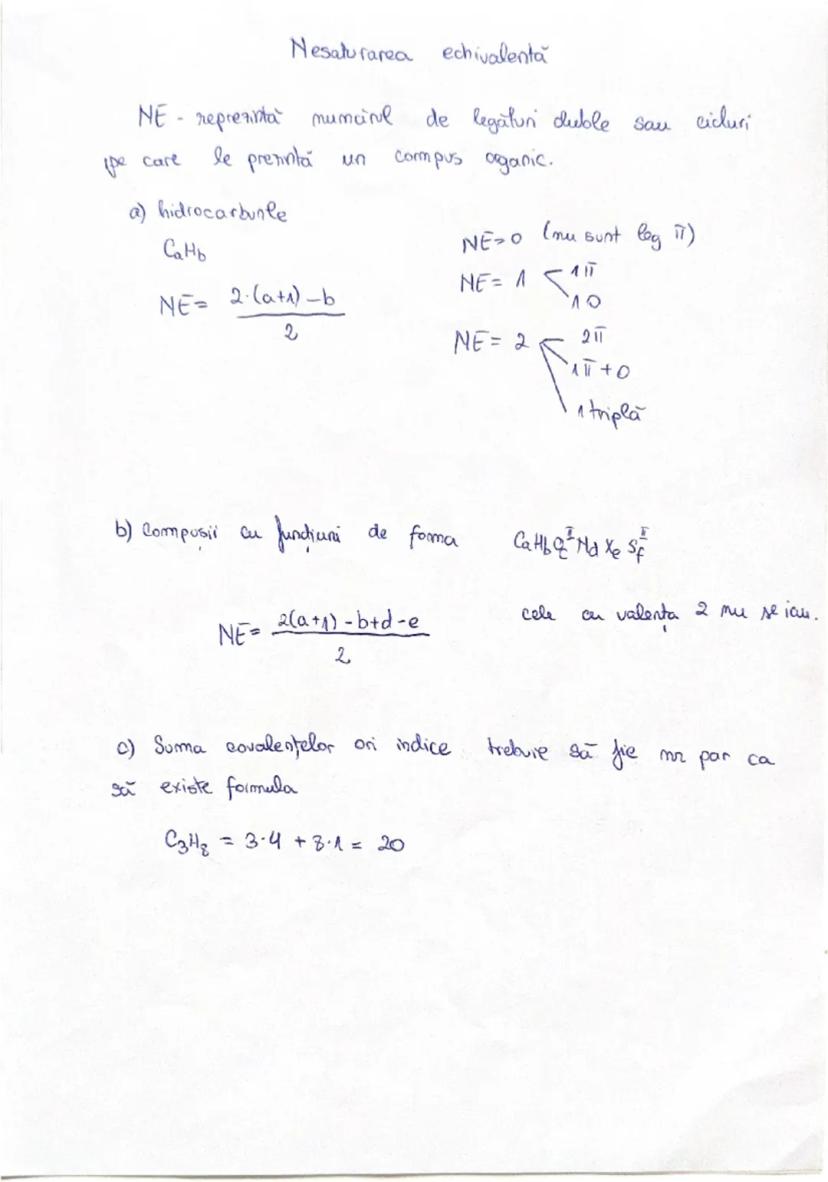 Nesaturarea echivalentă
NE - reprezintă numărul de legături duble sau cicluri
pe care le prezintă un compus organic.
a) hidrocarburile
CaHb
NE = 2·(a+1)-b / 2
NE=0 (nu sunt leg π)
NE = 1 < 1π
1 O
NE = 2 < 2π
1π+O
1 triplă
b) Compușii cu funcțiuni de forma CaHbOc^II Nd Xe Sf^II
NE = 2(a+1)-b+d-e / 2
cele cu valența 2 nu se iau.
c) Suma covalențelor ori indice trebuie să fie nr par ca
să existe formula
C3H8 = 3·4 + 8·1 = 20